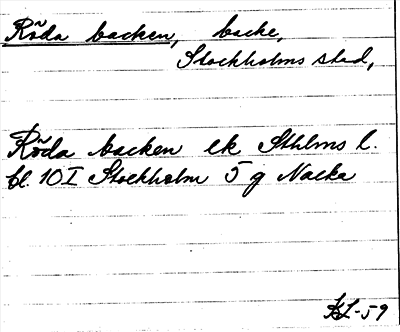 Röda backen, backe,
Stockholms stad,
Röda backen ek Sthlms l.
bl. 10 I Stockholm 5 g Nacka
KL-59